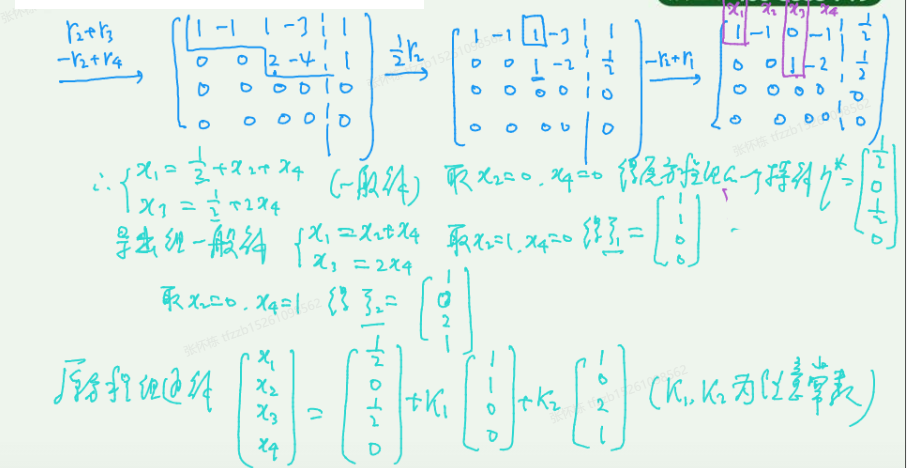 r₂+r₃
-r₂+r₄
1 -1 1 -3 1
0 0 2 -4 1
0 0 0 0 0
0 0 0 0 0
½r₂
1 -1 1 -3 1
0 0 1 -2 ½
0 0 0 0 0
0 0 0 0 0
-r₂+r₁
x₁ x₂ x₃ x₄
1 -1 0 -1 ½
0 0 1 -2 ½
0 0 0 0 0
0 0 0 0 0
∴ { x₁ = ½ + x₂ + x₄
x₃ = ½ + 2x₄
(一般解) 取 x₂=0, x₄=0 得原方程组的一个特解 η* = (½ 0 ½ 0)
导出组一般解 { x₁ = x₂+x₄
x₃ = 2x₄
取 x₂=1, x₄=0 得 ξ₁ = (1 1 0 0)
取 x₂=0, x₄=1 得 ξ₂ = (1 0 2 1)
原方程组通解 (x₁ x₂ x₃ x₄) = (½ 0 ½ 0) + K₁ (1 1 0 0) + K₂ (1 0 2 1) (K₁, K₂ 为任意常数)